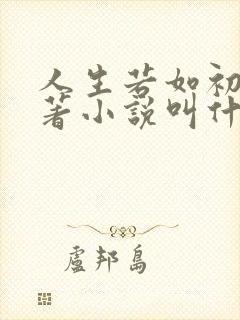 人生若如初
著小說叫什
盧邦島